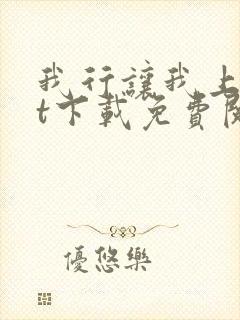 我行讓我上
t下載免費閱
優悠樂